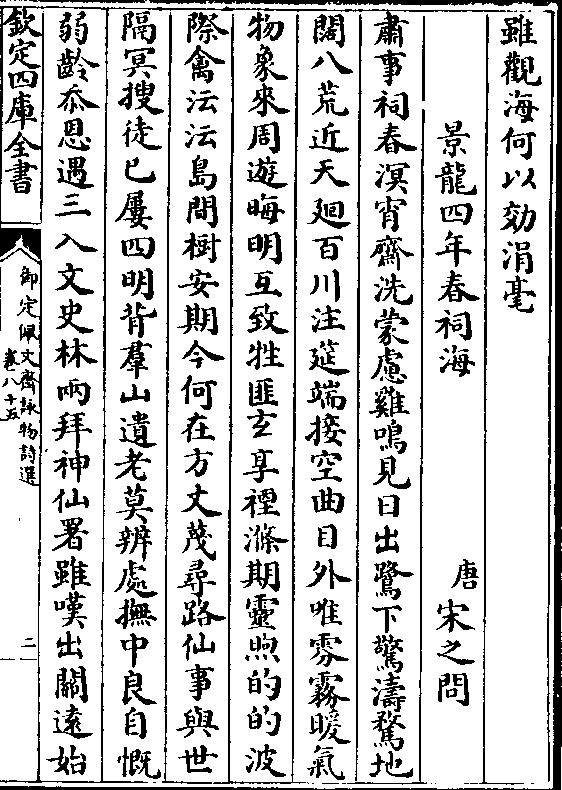 雖觀海何以効涓毫
景龍四年春祠海
唐宋之問
肅事祠春溟宵齋洗蒙慮雞鳴見日出鷺下驚濤騖地
闊八荒近天廻百川注筵端接空曲目外唯雰霧暖氣
物象來周遊晦明互致牲匪玄享禋滌期靈煦的的波
際禽沄沄島間樹安期今何在方丈蔑尋路仙事與世
隔冥搜徒已屢四明背羣山遺老莫辨處撫中良自慨
弱齡忝恩遇三入文史林兩拜神仙署雖嘆出關遠始
欽定四庫全書
御定佩文齋詠物詩選
卷八十五
二